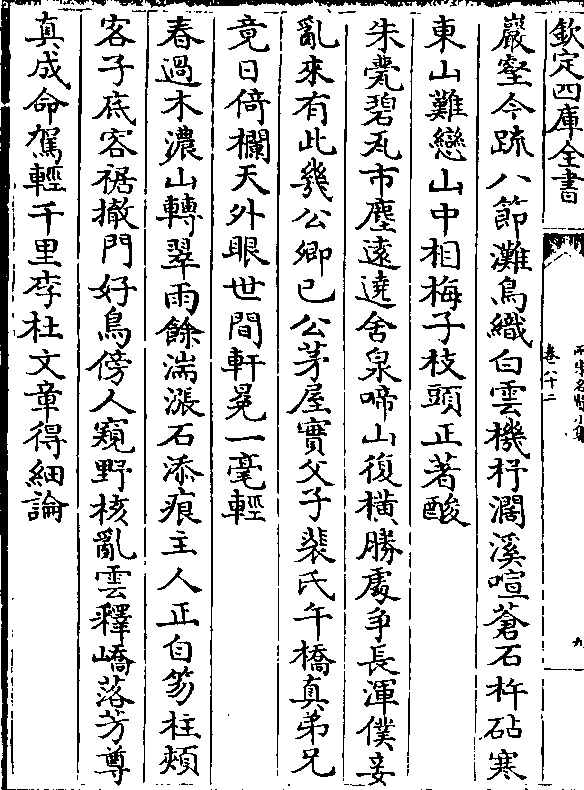 欽定四庫全書
卷八十二
九
巖壑今疏八節灘鳥織白雲機杼濶溪喧蒼石杵砧寒
東山難戀山中相梅子枝頭正著酸
朱甍碧瓦市塵遠遶舍泉啼山復橫勝處爭長渾僕妾
亂來有此幾公卿已公茅屋實父子裴氏午橋真弟兄
竟日倚欄天外眼世間軒冕一毫輕
春過木濃山轉翠雨餘湍漲石添痕主人正自笏柱頰
客子底容裾撤門好鳥傍人窺野核亂雲釋嶠落芳尊
真成命駕輕千里李杜文章得細論